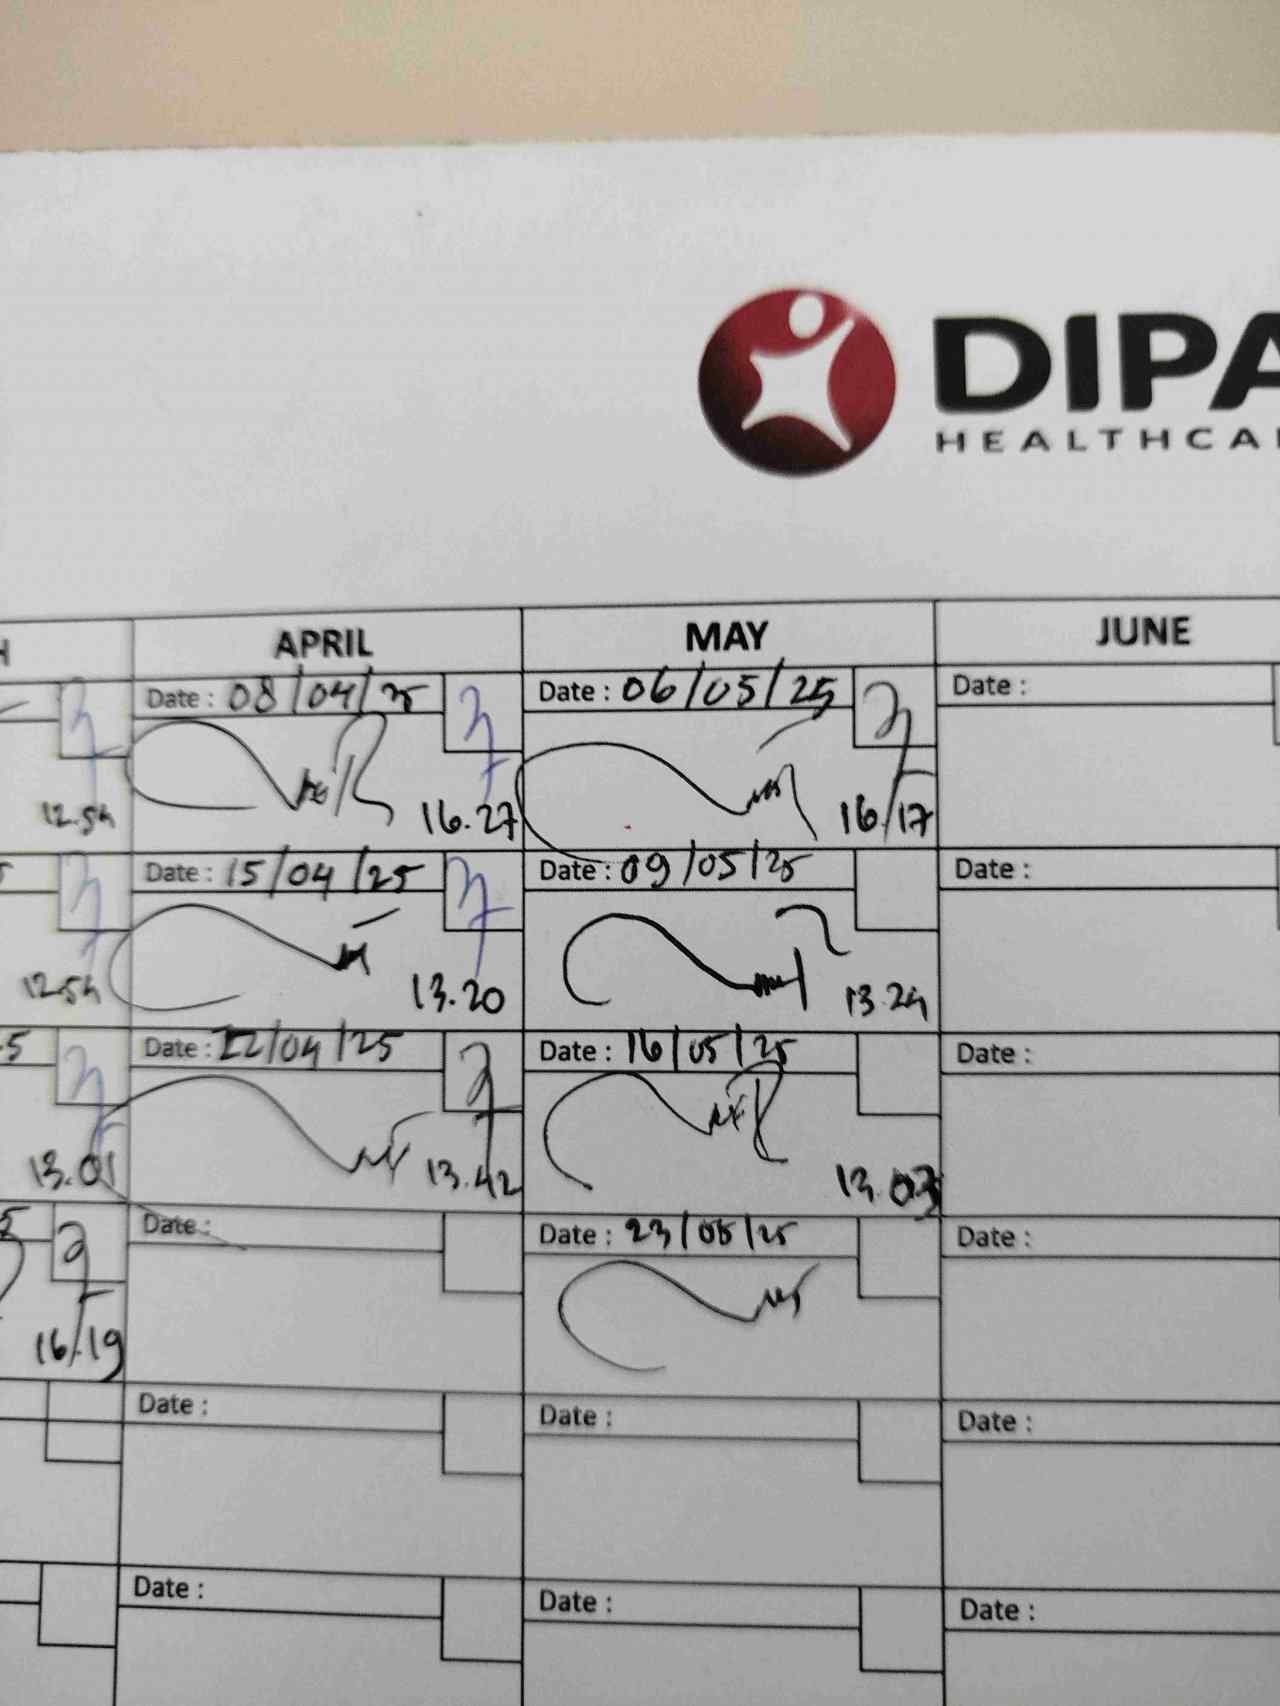 DIPA
HEALTHCA
H APRIL MAY JUNE
Date : 08/04/25 Date : 06/05/25 Date :
12.54 16.27 16/17
5 Date : 15/04/25 Date : 09/05/25 Date :
12.54 13.20 13.24
5 Date : 22/04/25 Date : 16/05/25 Date :
13.01 13.42 13.03
5 Date : Date : 23/05/25 Date :
16/19
Date : Date : Date :
Date : Date : Date :